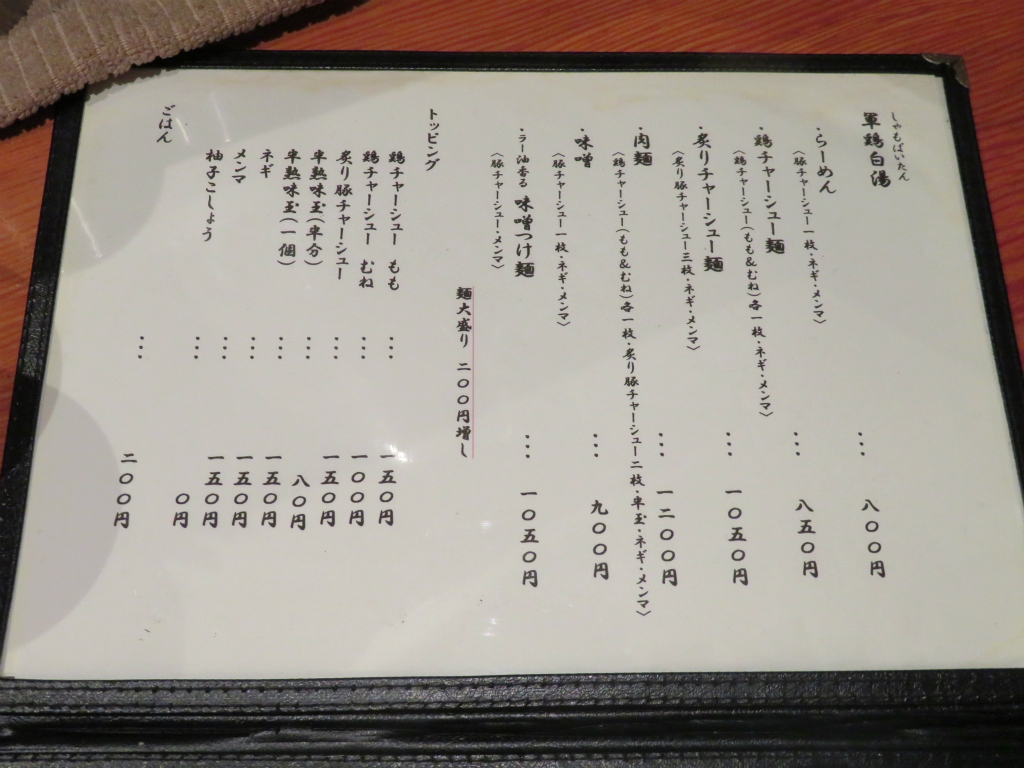 しゃもぱいたん
軍鶏白湯
・らーめん … 八〇〇円
〈豚チャーシュー一枚・ネギ・メンマ〉
・鶏チャーシュー麺 … 八五〇円
〈鶏チャーシュー(もも&むね)各一枚・ネギ・メンマ〉
・炙りチャーシュー麺 … 一〇五〇円
〈炙り豚チャーシュー三枚・ネギ・メンマ〉
・肉麺 … 一二〇〇円
〈鶏チャーシュー(もも&むね)各一枚・炙り豚チャーシュー二枚・半玉・ネギ・メンマ〉
・味噌 … 九〇〇円
〈豚チャーシュー一枚・ネギ・メンマ〉
・ラー油香る 味噌つけ麺 … 一〇五〇円
〈豚チャーシュー・メンマ〉
麺大盛り 二〇〇円増し
トッピング
鶏チャーシュー もも … 一五〇円
鶏チャーシュー むね … 一〇〇円
炙り豚チャーシュー … 一五〇円
半熟味玉(半分) … 八〇円
半熟味玉(一個) … 一五〇円
ネギ … 一五〇円
メンマ … 一五〇円
柚子こしょう … 〇円
ごはん … 二〇〇円